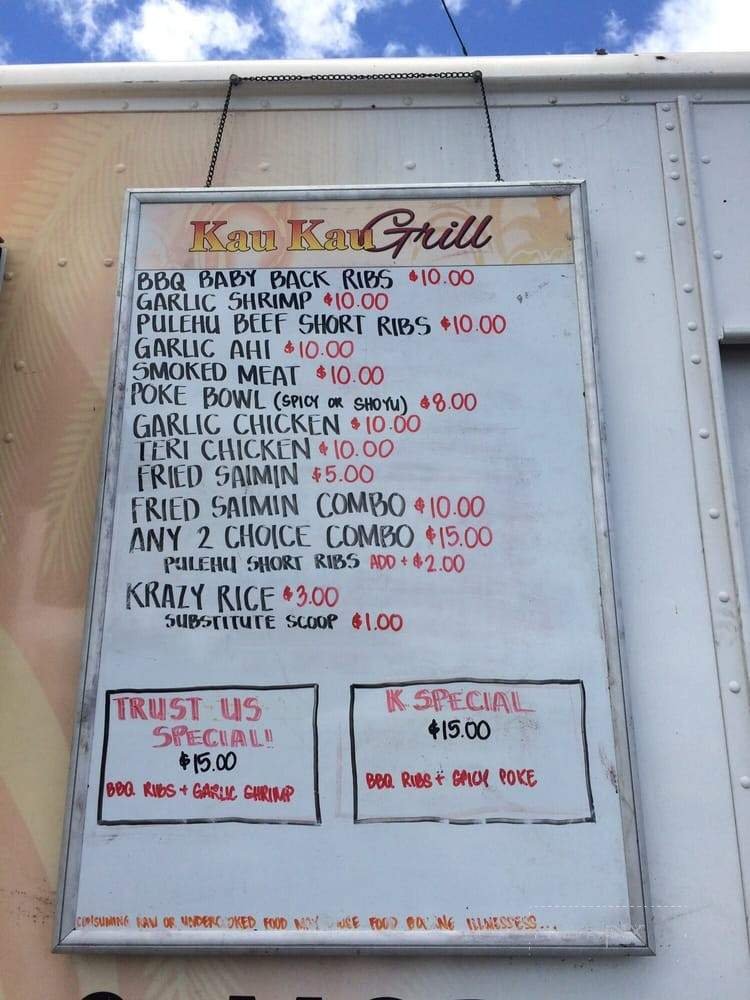 Kau Kau Grill
BBQ BABY BACK RIBS $10.00
GARLIC SHRIMP $10.00
PULEHU BEEF SHORT RIBS $10.00
GARLIC AHI $10.00
SMOKED MEAT $10.00
POKE BOWL (SPICY OR SHOYU) $8.00
GARLIC CHICKEN $10.00
TERI CHICKEN $10.00
FRIED SAIMIN $5.00
FRIED SAIMIN COMBO $10.00
ANY 2 CHOICE COMBO $15.00
PULEHU SHORT RIBS ADD + $2.00
KRAZY RICE $3.00
SUBSTITUTE SCOOP $1.00
TRUST US
SPECIAL!
$15.00
BBQ RIBS + GARLIC SHRIMP
K SPECIAL
$15.00
BBQ RIBS + SPICY POKE
CONSUMING RAW OR UNDERCOOKED FOOD MAY FOOD ILLNESSESS...